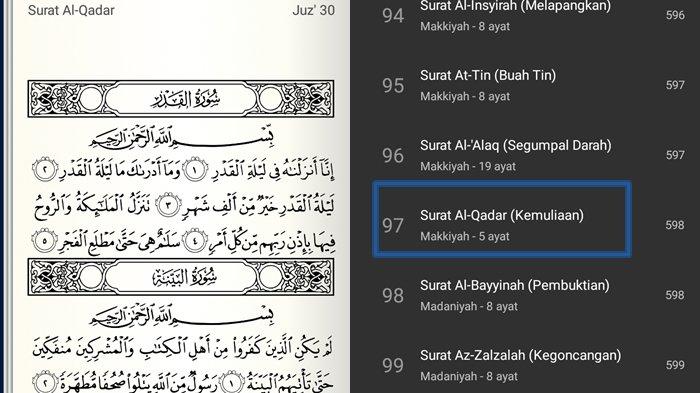 Surat Al-Qadar
Juz' 30
سُورَةُ القَدْرِ
بِسْمِ اللَّهِ الرَّحْمَٰنِ الرَّحِيمِ
إِنَّا أَنزَلْنَٰهُ فِى لَيْلَةِ الْقَدْرِ ١ وَمَا أَدْرَىٰكَ مَا لَيْلَةُ الْقَدْرِ ٢
لَيْلَةُ الْقَدْرِ خَيْرٌ مِّنْ أَلْفِ شَهْرٍ ٣ تَنَزَّلُ الْمَلَٰٓئِكَةُ وَالرُّوحُ
فِيهَا بِإِذْنِ رَبِّهِم مِّن كُلِّ أَمْرٍ ٤ سَلَٰمٌ هِىَ حَتَّىٰ مَطْلَعِ الْفَجْرِ ٥
سُورَةُ البَيِّنَةِ
بِسْمِ اللَّهِ الرَّحْمَٰنِ الرَّحِيمِ
لَمْ يَكُنِ الَّذِينَ كَفَرُوا مِنْ أَهْلِ الْكِتَٰبِ وَالْمُشْرِكِينَ مُنفَكِّينَ
حَتَّىٰ تَأْتِيَهُمُ الْبَيِّنَةُ ١ رَسُولٌ مِّنَ اللَّهِ يَتْلُوا صُحُفًا مُّطَهَّرَةً ٢
94 Surat Al-Insyirah (Melapangkan) 596
Makkiyah - 8 ayat
95 Surat At-Tin (Buah Tin) 597
Makkiyah - 8 ayat
96 Surat Al-'Alaq (Segumpal Darah) 597
Makkiyah - 19 ayat
97 Surat Al-Qadar (Kemuliaan) 598
Makkiyah - 5 ayat
98 Surat Al-Bayyinah (Pembuktian) 598
Madaniyah - 8 ayat
99 Surat Az-Zalzalah (Kegoncangan) 599
Madaniyah - 8 ayat